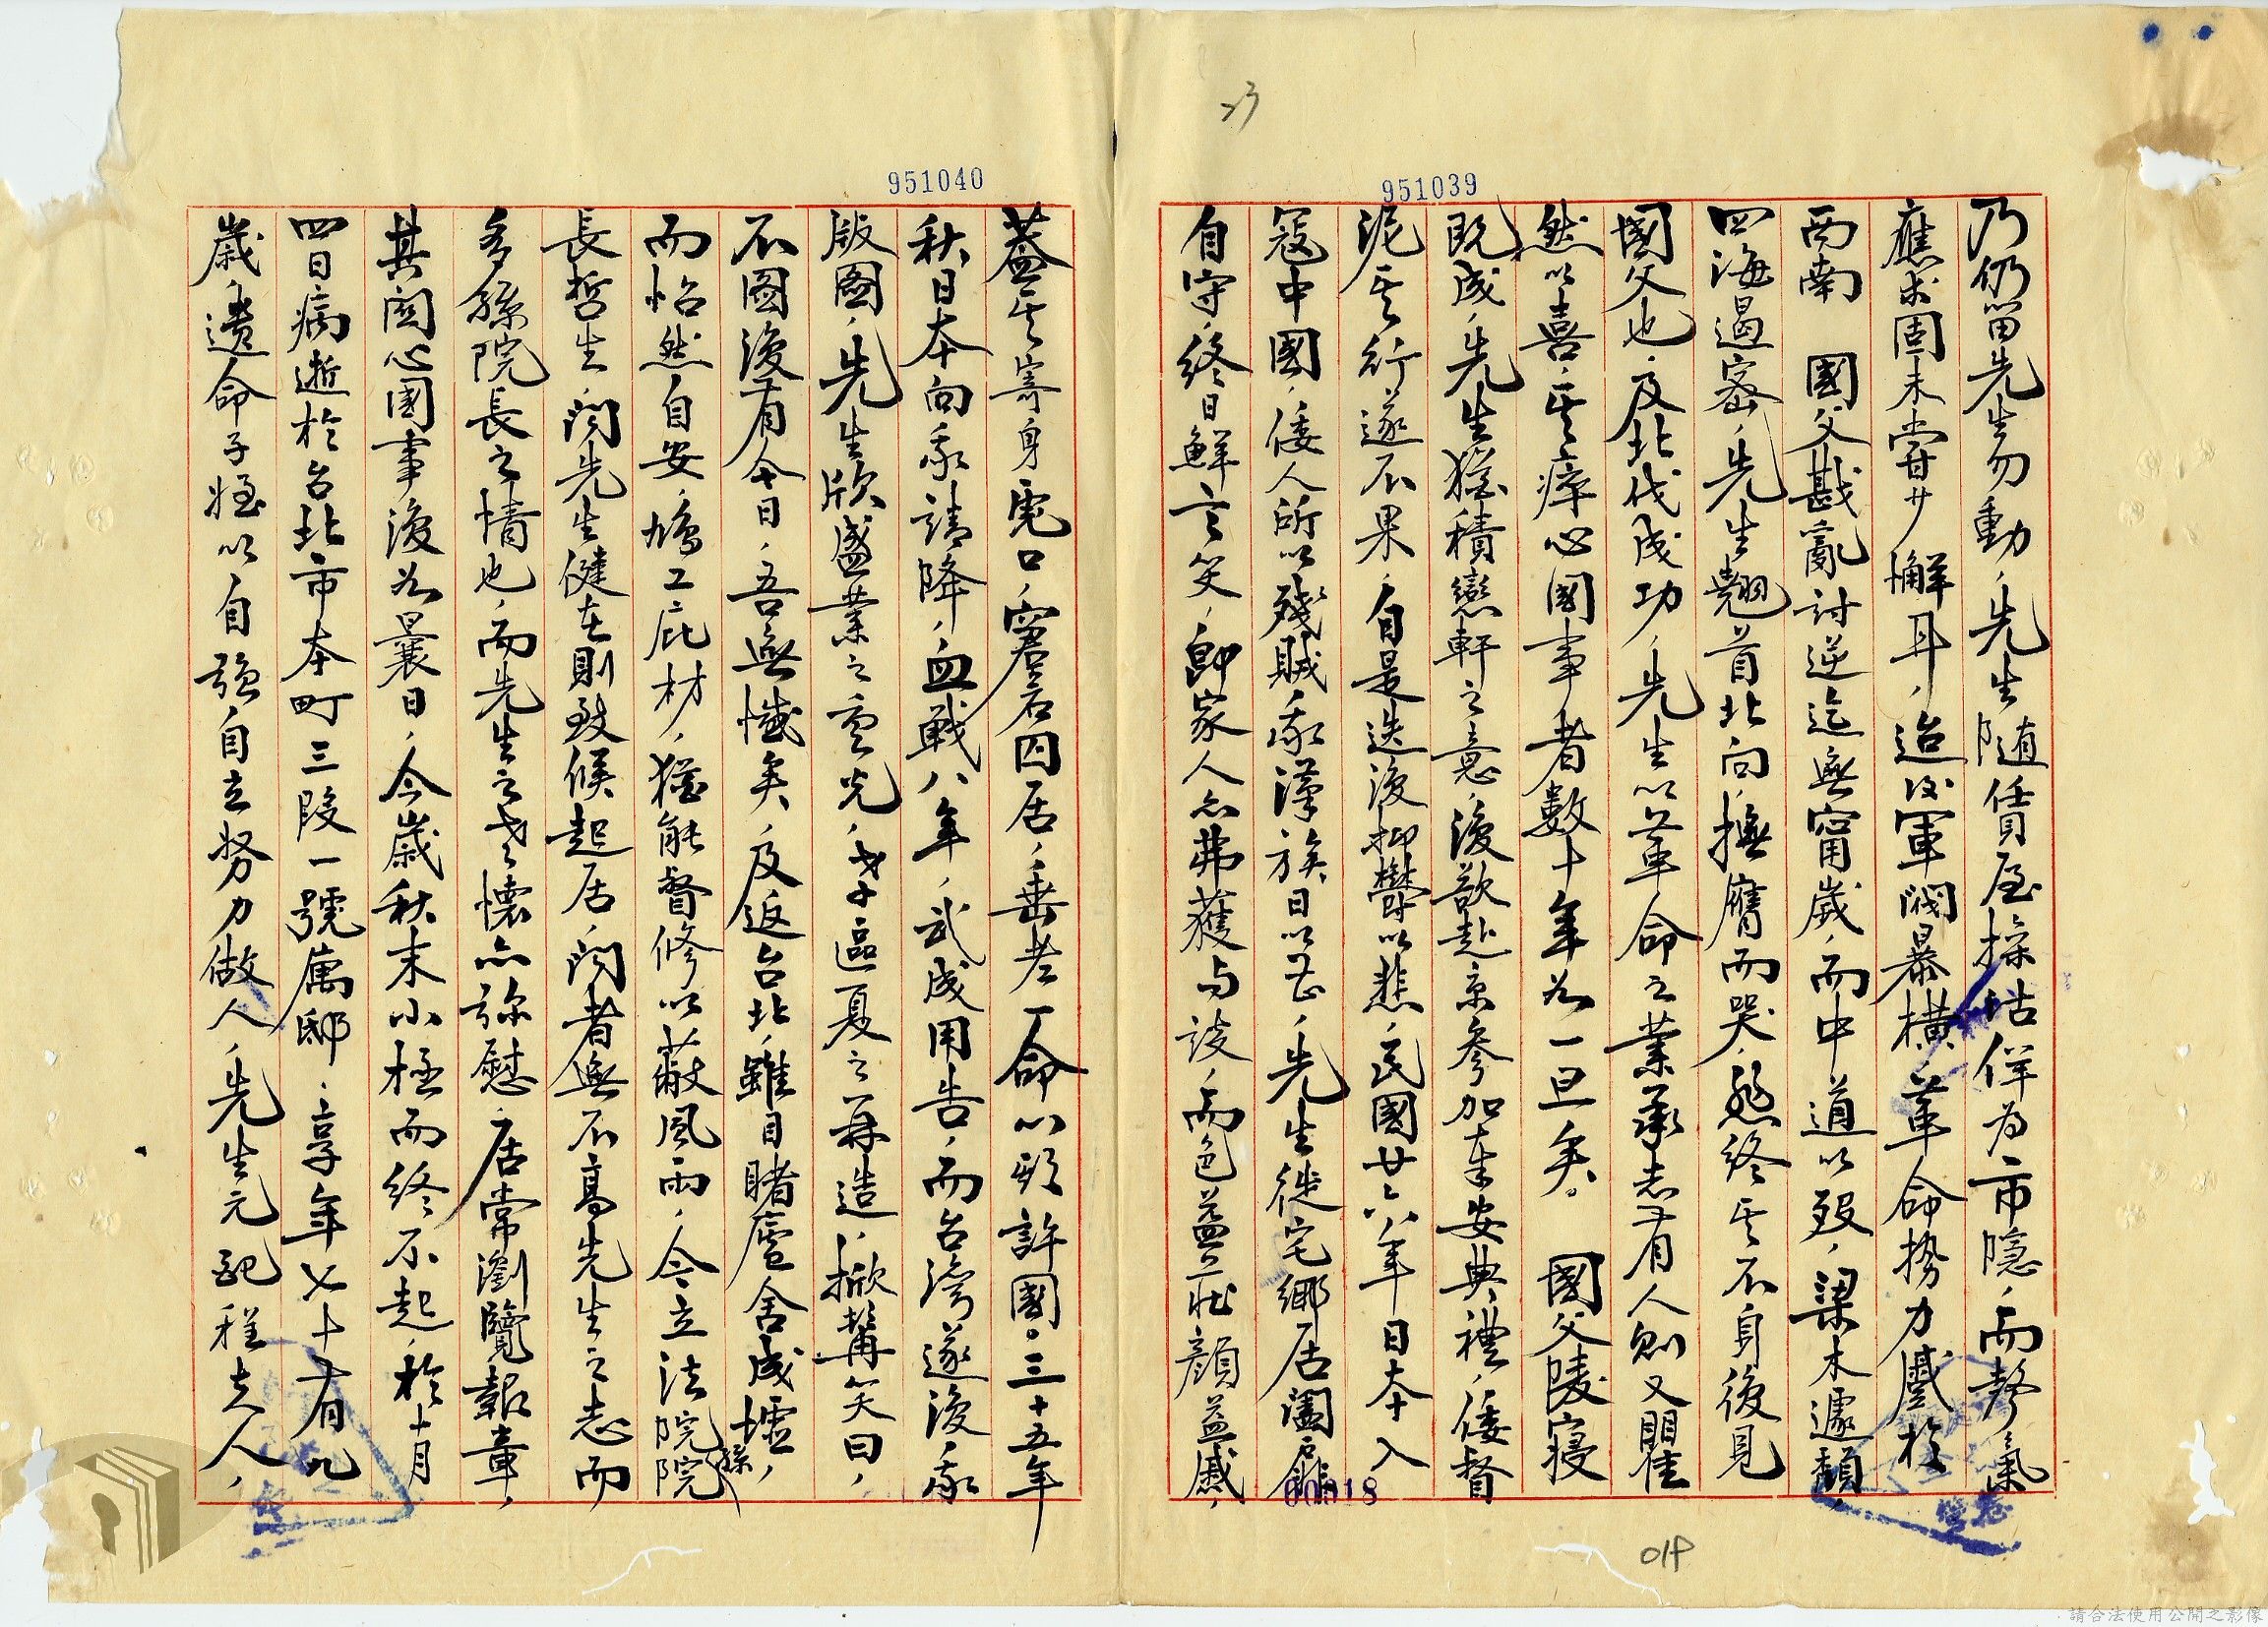 23
951039
乃仍留先生勿動，先生隨賃屋操估佯為市隱，而聲氣
應求固未嘗少懈耳，迨後軍閥暴橫，革命勢力蹙於
西南　國父戡亂討逆迄無甯歲，而中道以歿，梁木遽頹，
四海遏密，先生翹首北向，撫膺而哭，慇終其不身後見
國父也，及北伐成功，先生以革命之業承志有人則又瞿
然以喜，其瘁心國事者數十年如一旦矣。　國父陵寢
既成，先生猶積戀軒之意，復欲赴京參加奉安典禮，倭督
泥其行遂不果，自是迭復抑鬱以悲，民國廿六年日本入
寇中國，倭人所以殘賊我漢族日以甚，先生徙宅鄉居闔扉
自守，終日鮮言笑，即家人亦弗獲与談，而色益壯顏益慼，
00018
019
951040
蓋其寄身虎口，窘若囚居，垂老一命心期許國。三十五年
秋日本向我請降，血戰八年，武成用告，而台灣遂復我
版圖，先生欣盛業之重光，幸區夏之再造，掀髯笑曰，
不圖復有今日，吾無憾矣，及返台北，雖目睹廬舍成墟，
而怡然自安，鳩工庇材，猶能督修以蔽風雨，今立法院孫院
長哲生，聞先生健在則致候起居，聞者無不高先生之志而
多孫院長之情也，而先生之老懷亦彌慰，居常瀏覽報章，
其關心國事復如曩日，今歲秋末小極而終不起，於十月
四日病逝於台北市本町三段一號寓邸，享年七十有九
歲，遺命子姪以自強自立努力做人，先生元配程夫人，
請合法使用公開之影像